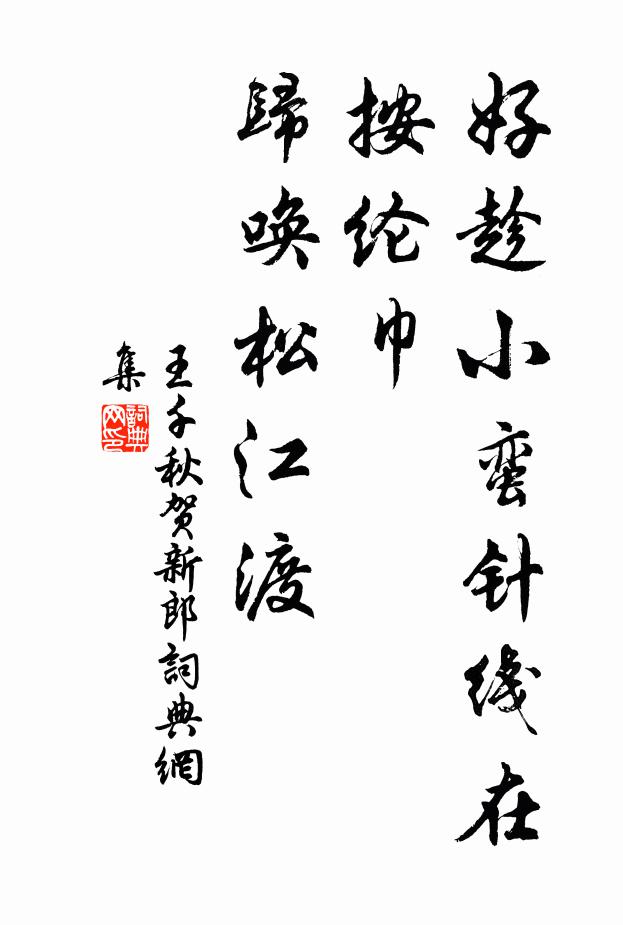 好趁小蛮针线在
按纶巾
歸唤松江渡
王千秋贺新郎詞典網
集
詞典网印